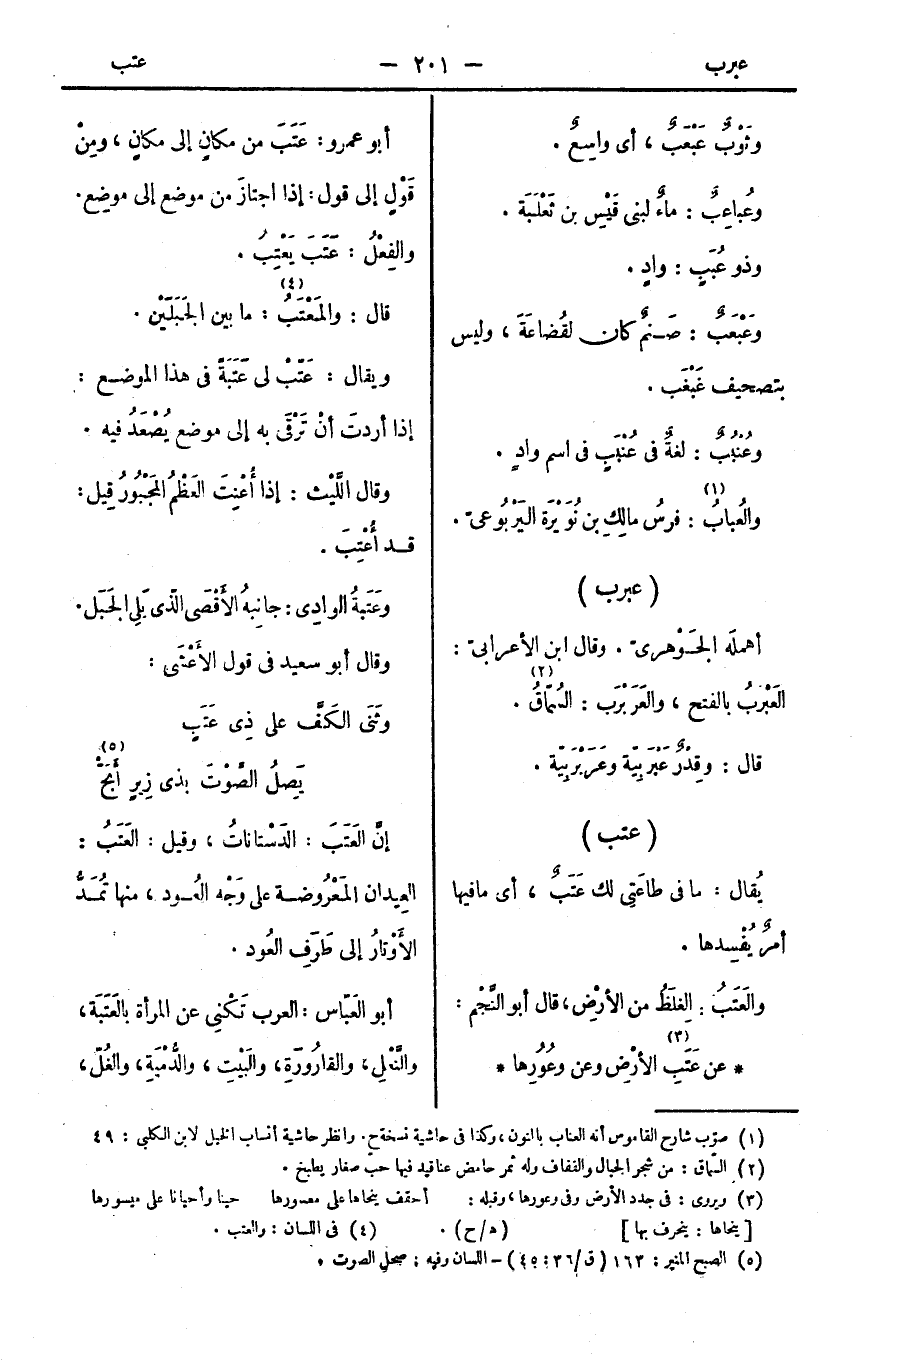 عبرب
— ٢٠١ —
عتب
وثَوْبٌ عَبْعَبٌ ، أى واسِعٌ .
وعُباعِبٌ : ماءٌ لبنى قَيْس بن ثَعْلَبَة .
وذو عُبَبٍ : وادٍ .
وعَبْعَبٌ : صَـنمٌ كان لقُضاعَةَ ، وليس
بتصحيف غَبْغَب .
وعُنْبُبٌ : لغةٌ فى عُنْبَبٍ فى اسم وادٍ .
والعُبابُ (١) : فرسُ مالِكِ بن نُوَيْرَة اليَرْبُوعىّ .
( عبرب )
أهملَه الجَـوْهرىّ . وقال ابن الأعرابىّ :
العَبْرَبُ بالفتح ، والعَرَبْرَب : السُّمَّاقُ (٢) .
قال : وقِدْرٌ عَبْرَبِيَّة وعَرَبْرَبِيَّة .
( عتب )
يُقال : ما فى طاعَتِى لك عَتَبٌ ، أى مافيها
أمرٌ يُفْسِدها .
والعَتَبُ : الغِلَظُ من الأرْض، قال أبو النَّجْم :
* عن عَتَبِ الأرْضِ وعن وعُورِها (٣) *
أبو عمرو: عَتَبَ من مكانٍ إلى مكانٍ ، ومِنْ
قَوْلٍ إلى قول: إذا اجتازَ من موضع إلى موضِع.
والفِعْلُ : عَتَبَ يَعْتِبُ .
قال : والمَعْتَبُ (٤) : ما بين الجَبَلَيْن .
ويقال : عَتِّبْ لى عَتَبَةً فى هذا الموضـع :
إذا أردتَ أنْ تَرْقَى به إلى موضع يُصْعَدُ فيه .
وقال اللَّيْث : إذا أُعْنِتَ العَظْمُ المَجْبُورُ قِيل:
قـد أُعْتِبَ .
وعَتَبَةُ الوادِى: جانِبهُ الأَقْصَى الّذى يَلِى الجَبَل.
وقال أبو سعيد فى قول الأَعْشَى :
وثَنَى الكَفَّ على ذِى عَتَبٍ
يَصِلُ الصَّوْتَ بذى زِيرٍ أَبَحّ (٥)
إنَّ العَتَبَ : الدَسْتاناتُ ، وقيل : العَتَبُ :
العِيدان المَعْرُوضـة على وَجْه العُـود ، منها تُمَـدُّ
الأَوْتارُ إلى طَرَفِ العُود .
أبو العَبّاس : العرب تَكْنِى عن المرأة بالعَتَبَة،
والنَّعْلِ، والقارُورَةِ، والبَيْتِ ، والدُّمْيَةِ، والغُلِّ،
(١) صوّب شارح القاموس أنه العناب بالنون، وكذا فى حاشية نسخة ح. وانظر حاشية أنساب الخيل لابن الكلبى : ٤٩
(٢) السّماق : من شجر الجبال والقفاف وله ثمر حامض عناقيد فيها حبّ صغار يطبخ .
(٣) ويروى : فى جدد الأرض وفى وعورها، وقبله : أحقف ينحاها على معصورها حينا وأحيانا على ميسورها
[ ينحاها : ينحرف بها ] (ه/ح) . (٤) فى اللسان : والعتب .
(٥) الصبح المنير : ١٦٣ ( ق/٣٦ : ٤٥ ) – اللسان وفيه : صحل الصوت .